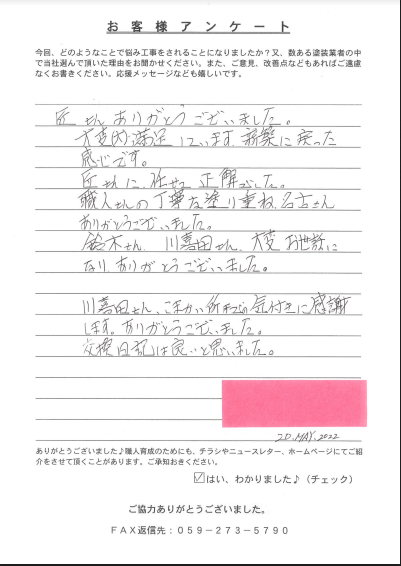 お客様アンケート
今回、どのようなことで悩み工事をされることになりましたか？又、数ある塗装業者の中
で当社選んで頂いた理由をお聞かせください。また、ご意見、改善点などもあればご遠慮
なくお書きください。応援メッセージなども嬉しいです。
匠さんありがとうございました。
大変満足しています。新築に戻った
感じです。
匠さんに任せて正解でした。
職人さんの丁寧な塗り重ね、名古さん
ありがとうございました。
鈴木さん、川嘉田さん、大変お世話に
なり、ありがとうございました。
川嘉田さん、こまかい所までの気付きに感謝
します。ありがとうございました。
交換日記は良いと思いました。
20.MAY.2022
ありがとうございました♪職人育成のためにも、チラシやニュースレター、ホームページにてご紹
介をさせて頂くことがあります。ご承知おきください。
☑はい、わかりました♪（チェック）
ご協力ありがとうございました。
ＦＡＸ返信先：０５９－２７３－５７９０